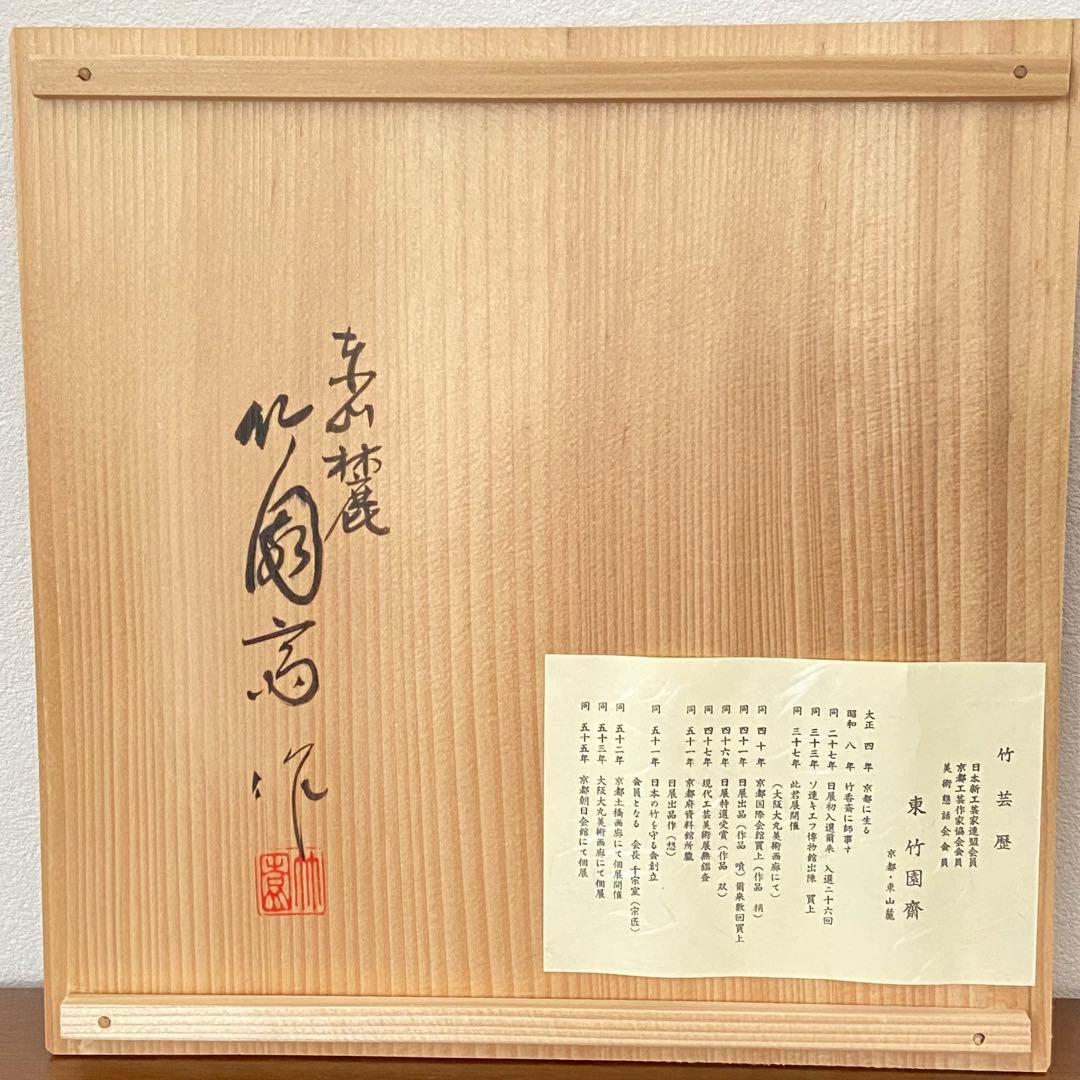 東山麓
竹園斎作
竹園
竹芸歴
日本新工芸家連盟会員
京都工芸作家協会会員
美術懇話会会員
東竹園齋
京都・東山麓
大正 四年 京都に生る
昭和 八年 竹香斎に師事す
同 二十七年 日展初入選爾来 入選二十六回
同 三十三年 ソ連キエフ博物館出陳 買上
同 三十七年 此君展開催
(大阪大丸美術画廊にて)
同 四十年 京都国際会館買上(作品 )
同 四十一年 日展出品(作品 噴)爾来数回買上
同 四十六年 日展特選受賞(作品 双)
同 四十七年 現代工芸美術展無鑑査
同 五十一年 京都府資料館所蔵
日展出品作(想)
同 五十一年 日本の竹を守る会創立
会員となる 会長 千宗室(宗匠)
同 五十二年 京都土橋画廊にて個展開催
同 五十三年 大阪大丸美術画廊にて個展
同 五十五年 京都朝日会館にて個展